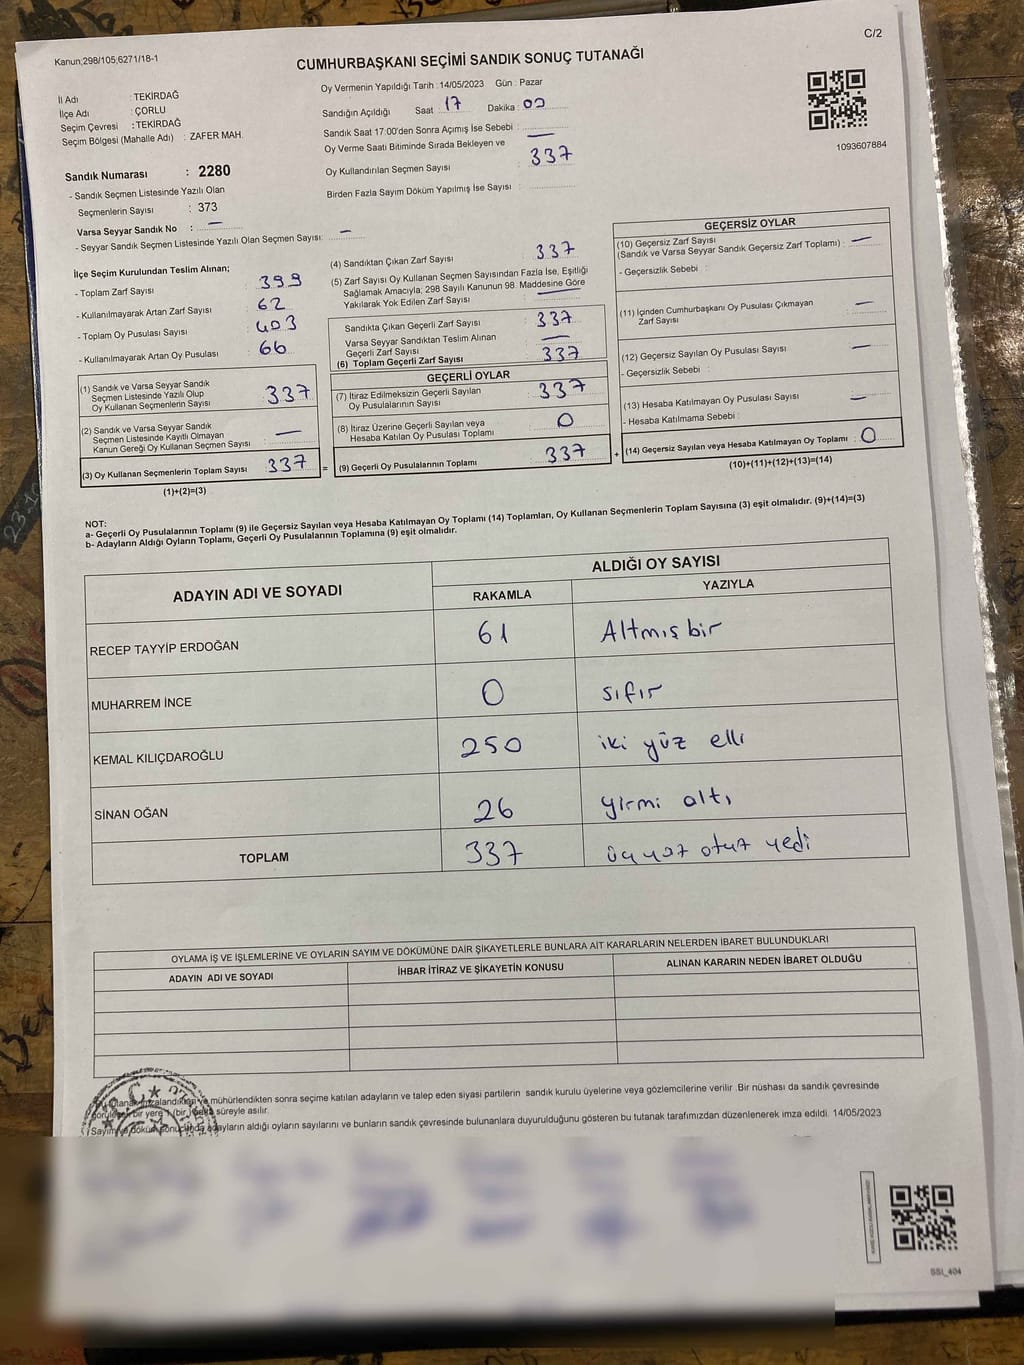 Kanun;298/105,6271/18-1
C/2
CUMHURBAŞKANI SEÇİMİ SANDIK SONUÇ TUTANAĞI
İl Adı : TEKİRDAĞ
İlçe Adı : ÇORLU
Seçim Çevresi : TEKİRDAĞ
Seçim Bölgesi (Mahalle Adı) : ZAFER MAH.
Oy Vermenin Yapıldığı Tarih :14/05/2023 Gün : Pazar
Sandığın Açıldığı Saat : 17 Dakika : 00
Sandık Saat 17:00'den Sonra Açımış İse Sebebi : —
Oy Verme Saati Bitiminde Sırada Bekleyen ve
Oy Kullandırılan Seçmen Sayısı : 337
Birden Fazla Sayım Döküm Yapılmış İse Sayısı :
1093607884
Sandık Numarası : 2280
- Sandık Seçmen Listesinde Yazılı Olan
Seçmenlerin Sayısı : 373
Varsa Seyyar Sandık No : —
- Seyyar Sandık Seçmen Listesinde Yazılı Olan Seçmen Sayısı: —
İlçe Seçim Kurulundan Teslim Alınan;
- Toplam Zarf Sayısı : 399
- Kullanılmayarak Artan Zarf Sayısı : 62
- Toplam Oy Pusulası Sayısı : 403
- Kullanılmayarak Artan Oy Pusulası : 66
(1) Sandık ve Varsa Seyyar Sandık
Seçmen Listesinde Yazılı Olup
Oy Kullanan Seçmenlerin Sayısı : 337
(2) Sandık ve Varsa Seyyar Sandık
Seçmen Listesinde Kayıtlı Olmayan
Kanun Gereği Oy Kullanan Seçmen Sayısı : —
(3) Oy Kullanan Seçmenlerin Toplam Sayısı : 337
(1)+(2)=(3)
(4) Sandıktan Çıkan Zarf Sayısı : 337
(5) Zarf Sayısı Oy Kullanan Seçmen Sayısından Fazla İse, Eşitliği
Sağlamak Amacıyla; 298 Sayılı Kanunun 98. Maddesine Göre
Yakılarak Yok Edilen Zarf Sayısı : —
Sandıkta Çıkan Geçerli Zarf Sayısı : 337
Varsa Seyyar Sandıktan Teslim Alınan
Geçerli Zarf Sayısı : —
(6) Toplam Geçerli Zarf Sayısı : 337
GEÇERLİ OYLAR
(7) İtiraz Edilmeksizin Geçerli Sayılan
Oy Pusulalarının Sayısı : 337
(8) İtiraz Üzerine Geçerli Sayılan veya
Hesaba Katılan Oy Pusulası Toplamı : 0
= (9) Geçerli Oy Pusulalarının Toplamı : 337
GEÇERSİZ OYLAR
(10) Geçersiz Zarf Sayısı
(Sandık ve Varsa Seyyar Sandık Geçersiz Zarf Toplamı) : —
- Geçersizlik Sebebi :
(11) İçinden Cumhurbaşkanı Oy Pusulası Çıkmayan
Zarf Sayısı : —
(12) Geçersiz Sayılan Oy Pusulası Sayısı : —
- Geçersizlik Sebebi :
(13) Hesaba Katılmayan Oy Pusulası Sayısı : —
- Hesaba Katılmama Sebebi :
+ (14) Geçersiz Sayılan veya Hesaba Katılmayan Oy Toplamı : 0
(10)+(11)+(12)+(13)=(14)
NOT:
a- Geçerli Oy Pusulalarının Toplamı (9) ile Geçersiz Sayılan veya Hesaba Katılmayan Oy Toplamı (14) Toplamları, Oy Kullanan Seçmenlerin Toplam Sayısına (3) eşit olmalıdır. (9)+(14)=(3)
b- Adayların Aldığı Oyların Toplamı, Geçerli Oy Pusulalarının Toplamına (9) eşit olmalıdır.
ADAYIN ADI VE SOYADI
ALDIĞI OY SAYISI
RAKAMLA YAZIYLA
RECEP TAYYİP ERDOĞAN 61 Altmış bir
MUHARREM İNCE 0 sıfır
KEMAL KILIÇDAROĞLU 250 iki yüz elli
SİNAN OĞAN 26 yirmi altı
TOPLAM 337 üç yüz otuz yedi
OYLAMA İŞ VE İŞLEMLERİNE VE OYLARIN SAYIM VE DÖKÜMÜNE DAİR ŞİKAYETLERLE BUNLARA AİT KARARLARIN NELERDEN İBARET BULUNDUKLARI
ADAYIN ADI VE SOYADI İHBAR İTİRAZ VE ŞİKAYETİN KONUSU ALINAN KARARIN NEDEN İBARET OLDUĞU
mühürlendikten sonra seçime katılan adayların ve talep eden siyasi partilerin sandık kurulu üyelerine veya gözlemcilerine verilir .Bir nüshası da sandık çevresinde
bir yere 1 (bir) hafta süreyle asılır.
adayların aldığı oyların sayılarını ve bunların sandık çevresinde bulunanlara duyurulduğunu gösteren bu tutanak tarafımızdan düzenlenerek imza edildi. 14/05/2023
SSI_404